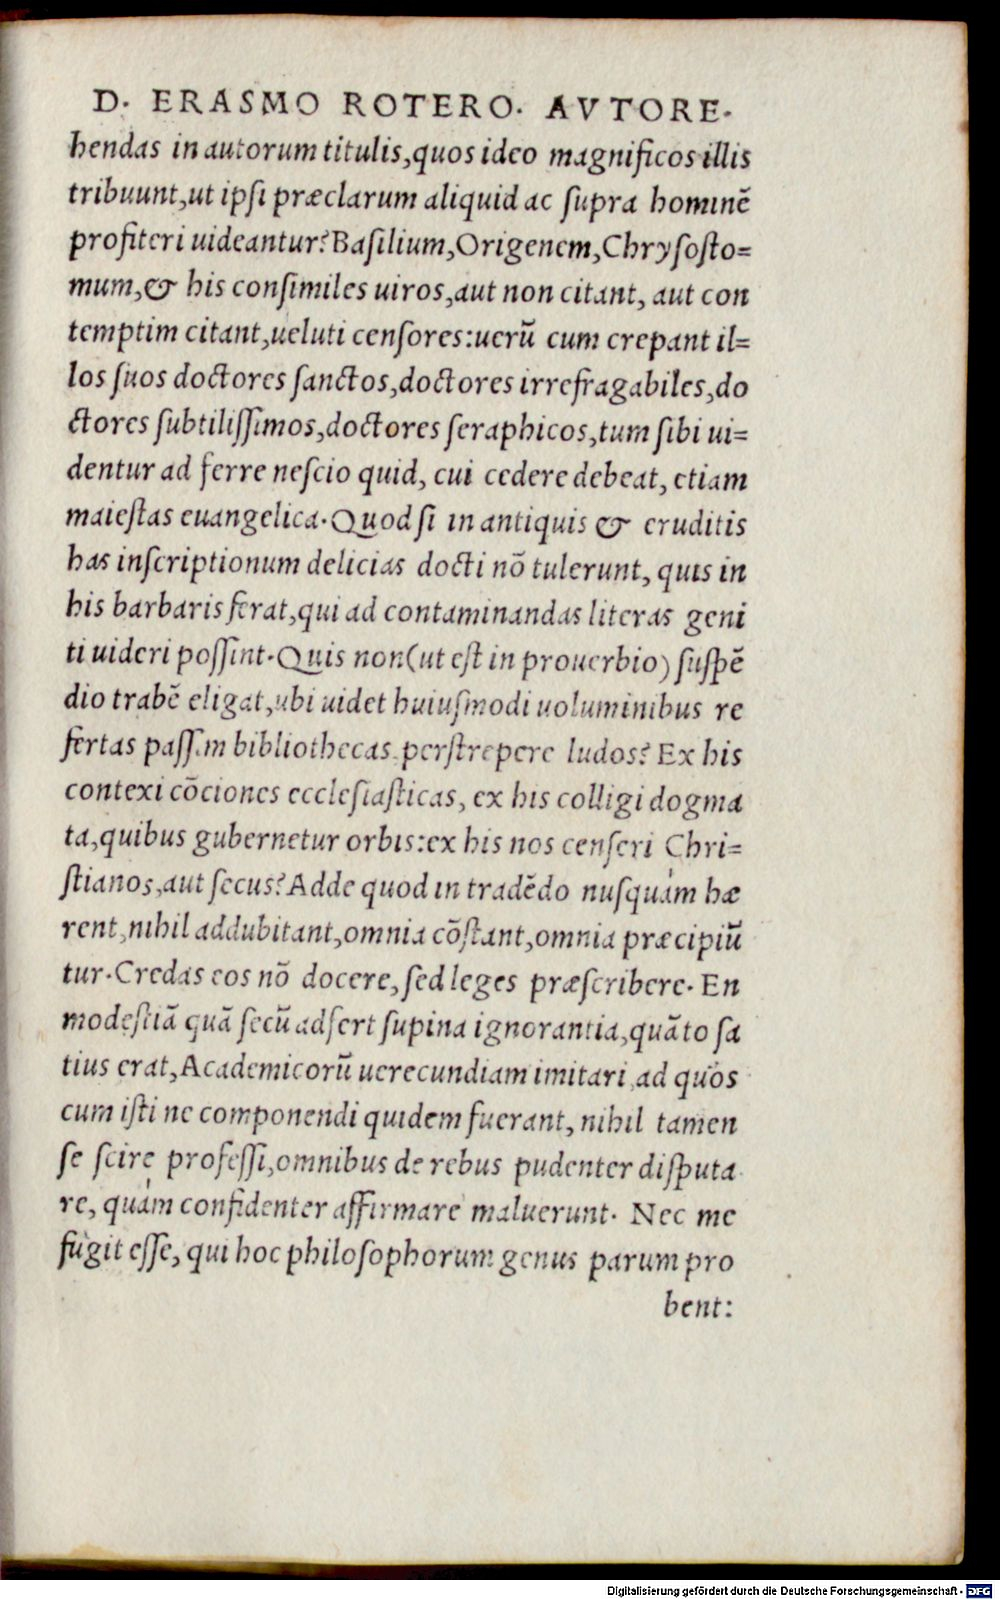 D. ERASMO ROTERO. AVTORE.
hendas in autorum titulis,quos ideo magnificos illis
tribuunt,ut ipsi præclarum aliquid ac supra hominẽ
profiteri uideantur?Basilium,Origenem,Chrysosto=
mum,& his consimiles uiros,aut non citant, aut con
temptim citant,ueluti censores:uerũ cum crepant il=
los suos doctores sanctos,doctores irrefragabiles,do
ctores subtilissimos,doctores seraphicos,tum sibi ui=
dentur ad ferre nescio quid, cui cedere debeat, etiam
maiestas euangelica.Quod si in antiquis & eruditis
has inscriptionum delicias docti nõ tulerunt, quis in
his barbaris ferat,qui ad contaminandas literas geni
ti uideri possint.Quis non(ut est in prouerbio) suspẽ
dio trabẽ eligat,ubi uidet huiusmodi uoluminibus re
fertas passim bibliothecas perstrepere ludos? Ex his
contexi cõciones ecclesiasticas, ex his colligi dogma
ta,quibus gubernetur orbis:ex his nos censeri Chri=
stianos,aut secus?Adde quod in tradẽdo nusquàm hæ
rent,nihil addubitant,omnia cõstant,omnia præcipiũ
tur.Credas eos nõ docere,sed leges præscribere. En
modestiã quã secũ adfert supina ignorantia,quãto sa
tius erat,Academicorũ uerecundiam imitari,ad quos
cum isti ne componendi quidem fuerant, nihil tamen
se scire professi,omnibus de rebus pudenter disputa
re, quàm confidenter affirmare maluerunt. Nec me
fugit esse, qui hoc philosophorum genus parum pro
bent:
Digitalisierung gefördert durch die Deutsche Forschungsgemeinschaft - DFG